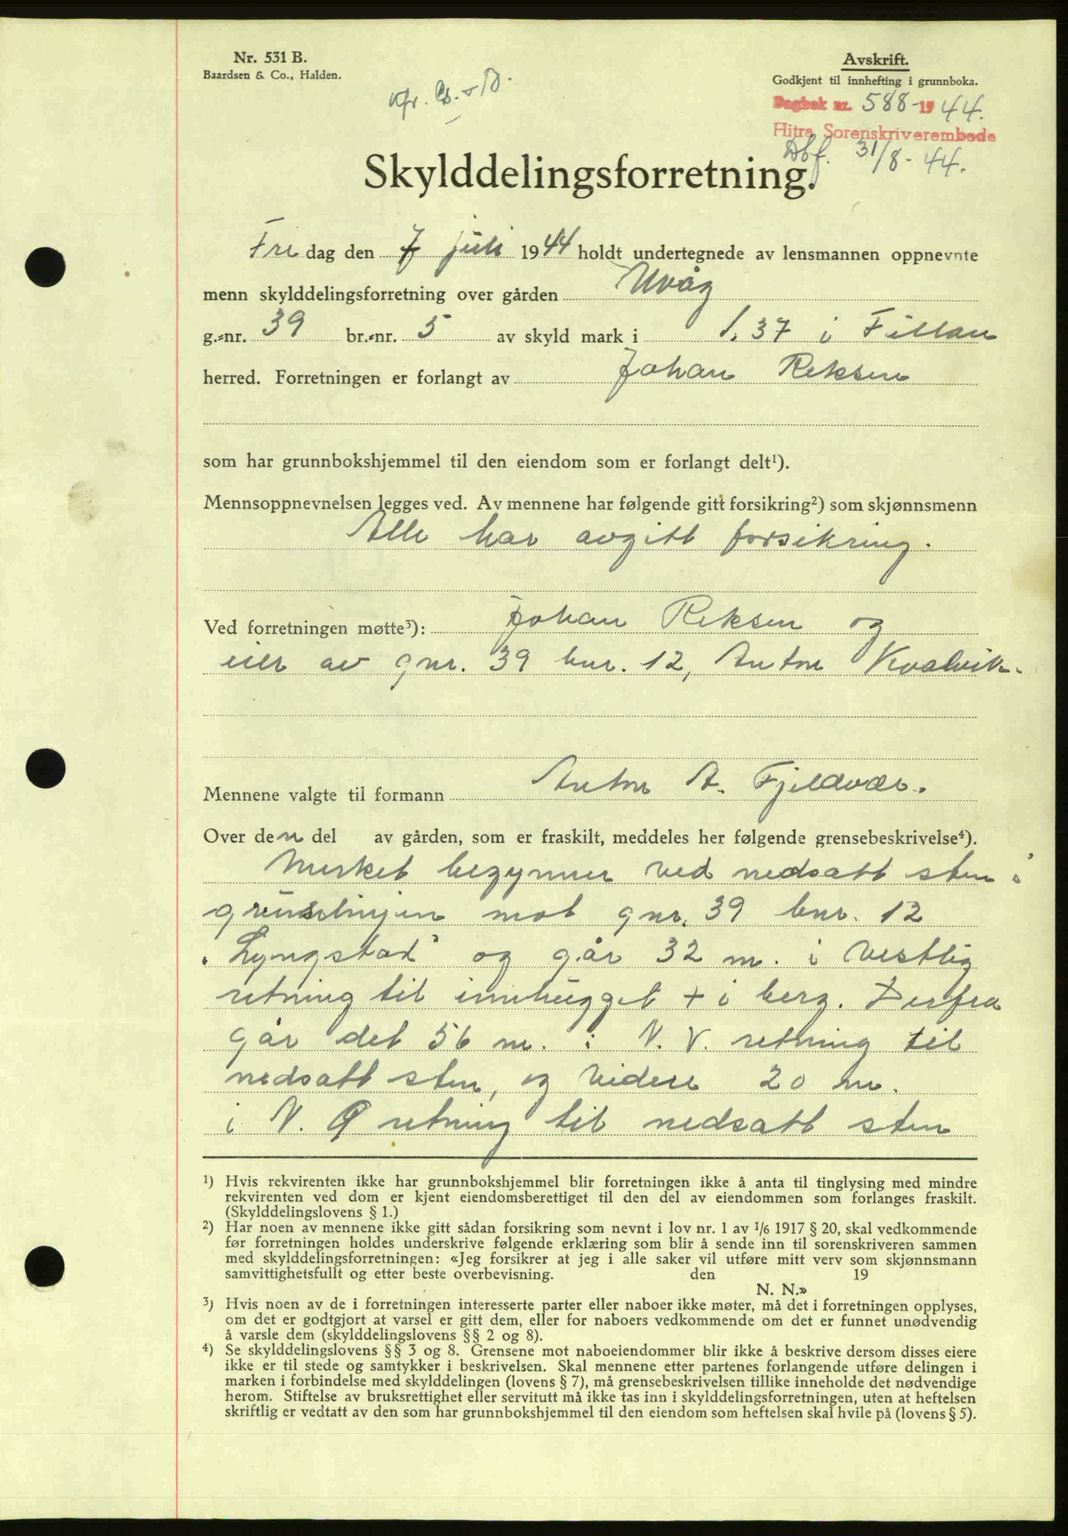 Nr. 531 B.
Baardsen & Co., Halden.
Avskrift.
Godkjent til innhefting i grunnboka.
Dagbok nr. 588-1944.
Hitra Sorenskriverembede
Dbf. 31/8-44.
Skylddelingsforretning.
Fredag den 7 juli 1944 holdt undertegnede av lensmannen oppnevnte
menn skylddelingsforretning over gården Uvåg
g.-nr. 39 br.-nr. 5 av skyld mark i 1.37 i Fillan
herred. Forretningen er forlangt av Johan Reksen
som har grunnbokshjemmel til den eiendom som er forlangt delt¹).
Mennsoppnevnelsen legges ved. Av mennene har følgende gitt forsikring²) som skjønnsmenn
Alle har avgitt forsikring.
Ved forretningen møtte³): Johan Reksen og
eier av gnr. 39 bnr. 12, Anton Kvalvik.
Mennene valgte til formann Anton A. Fjeldvær.
Over den del av gården, som er fraskilt, meddeles her følgende grensebeskrivelse⁴).
Merket begynner ved nedsatt sten i
grenselinjen mot gnr. 39 bnr. 12
"Lyngstad" og går 32 m. i vestlig
retning til innhugget + i berg. Derfra
går det 56 m. i N. V. retning til
nedsatt sten, og videre 20 m.
i N. Ø retning til nedsatt sten
¹) Hvis rekvirenten ikke har grunnbokshjemmel blir forretningen ikke å anta til tinglysing med mindre
rekvirenten ved dom er kjent eiendomsberettiget til den del av eiendommen som forlanges fraskilt.
(Skylddelingslovens § 1.)
²) Har noen av mennene ikke gitt sådan forsikring som nevnt i lov nr. 1 av 1/6 1917 § 20, skal vedkommende
før forretningen holdes underskrive følgende erklæring som blir å sende inn til sorenskriveren sammen
med skylddelingsforretningen: «Jeg forsikrer at jeg i alle saker vil utføre mitt verv som skjønnsmann
samvittighetsfullt og etter beste overbevisning. den 19
N. N.»
³) Hvis noen av de i forretningen interesserte parter eller naboer ikke møter, må det i forretningen opplyses,
om det er godtgjort at varsel er gitt dem, eller for naboers vedkommende om det er funnet unødvendig
å varsle dem (skylddelingslovens §§ 2 og 8).
⁴) Se skylddelingslovens §§ 3 og 8. Grensene mot naboeiendommer blir ikke å beskrive dersom disses eiere
ikke er til stede og samtykker i beskrivelsen. Skal mennene etter partenes forlangende utføre delingen i
marken i forbindelse med skylddelingen (lovens § 7), må grensebeskrivelsen tillike inneholde det nødvendige
herom. Stiftelse av bruksrettighet eller servitutt må ikke tas inn i skylddelingsforretningen, uten at heftelsen
skriftlig er vedtatt av den som har grunnbokshjemmel til den eiendom som heftelsen skal hvile på (lovens § 5).